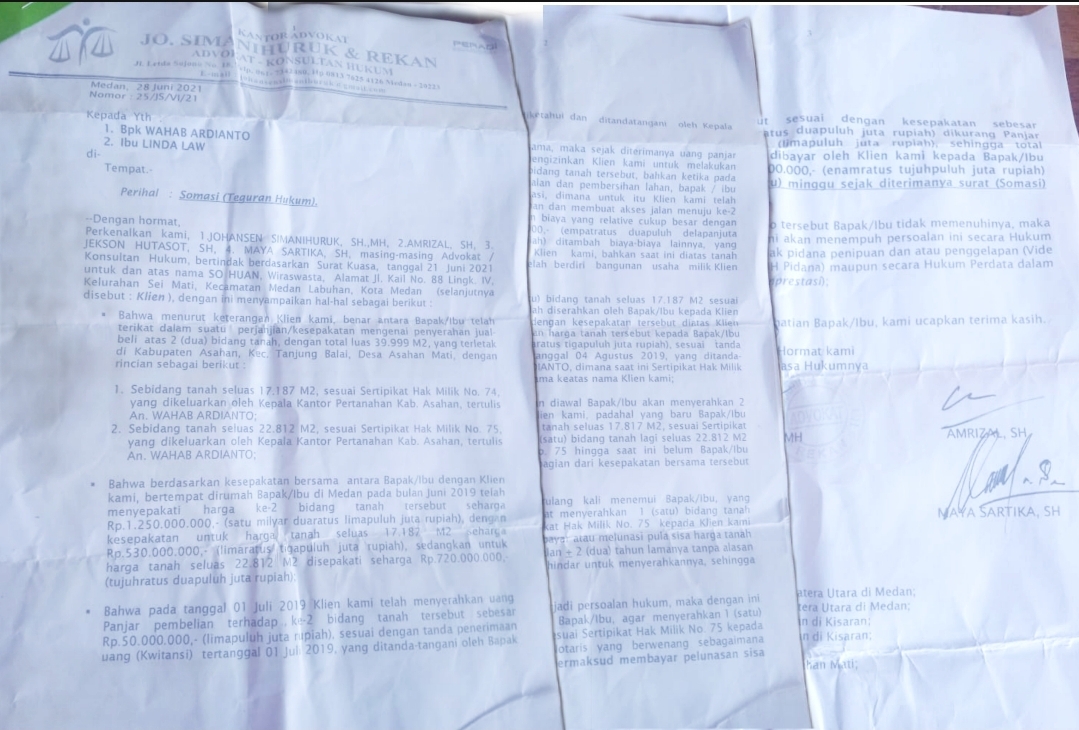 KANTOR ADVOKAT
JO. SIMANIHURUK & REKAN
ADVOKAT - KONSULTAN HUKUM
PERADI
Medan, 28 Juni 2021
Nomor : 25/JS/VI/21
Kepada Yth :
1. Bpk WAHAB ARDIANTO
2. Ibu LINDA LAW
di-
Tempat.-
Perihal : Somasi (Teguran Hukum).
--Dengan hormat,
Perkenalkan kami, 1.JOHANSEN SIMANIHURUK, SH.,MH, 2.AMRIZAL, SH, 3.
JEKSON HUTASOT, SH, 4. MAYA SARTIKA, SH, masing-masing Advokat /
Konsultan Hukum, bertindak berdasarkan Surat Kuasa, tanggal 21 Juni 2021
untuk dan atas nama SO HUAN, Wiraswasta, Alamat Jl. Kail No. 88 Lingk. IV,
Kelurahan Sei Mati, Kecamatan Medan Labuhan, Kota Medan (selanjutnya
disebut : Klien ), dengan ini menyampaikan hal-hal sebagai berikut :
• Bahwa menurut keterangan Klien kami, benar antara Bapak/Ibu telah
terikat dalam suatu perjanjian/kesepakatan mengenai penyerahan jual-
beli atas 2 (dua) bidang tanah, dengan total luas 39.999 M2, yang terletak
di Kabupaten Asahan, Kec. Tanjung Balai, Desa Asahan Mati, dengan
rincian sebagai berikut :
1. Sebidang tanah seluas 17.187 M2, sesuai Sertipikat Hak Milik No. 74,
yang dikeluarkan oleh Kepala Kantor Pertanahan Kab. Asahan, tertulis
An. WAHAB ARDIANTO;
2. Sebidang tanah seluas 22.812 M2, sesuai Sertipikat Hak Milik No. 75,
yang dikeluarkan oleh Kepala Kantor Pertanahan Kab. Asahan, tertulis
An. WAHAB ARDIANTO;
• Bahwa berdasarkan kesepakatan bersama antara Bapak/Ibu dengan Klien
kami, bertempat dirumah Bapak/Ibu di Medan pada bulan Juni 2019 telah
menyepakati harga ke-2 bidang tanah tersebut seharga
Rp.1.250.000.000,- (satu milyar duaratus limapuluh juta rupiah), dengan
kesepakatan untuk harga tanah seluas 17.187 M2 seharga
Rp.530.000.000,- (limaratus tigapuluh juta rupiah), sedangkan untuk
harga tanah seluas 22.812 M2 disepakati seharga Rp.720.000.000,-
(tujuhratus duapuluh juta rupiah);
• Bahwa pada tanggal 01 Juli 2019 Klien kami telah menyerahkan uang
Panjar pembelian terhadap ke-2 bidang tanah tersebut sebesar
Rp.50.000.000,- (limapuluh juta rupiah), sesuai dengan tanda penerimaan
uang (Kwitansi) tertanggal 01 Juli 2019, yang ditanda-tangani oleh Bapak
2
ketahui dan ditandatangani oleh Kepala
ama, maka sejak diterimanya uang panjar
engizinkan Klien kami untuk melakukan
idang tanah tersebut, bahkan ketika pada
aian dan pembersihan lahan, bapak / ibu
asi, dimana untuk itu Klien kami telah
an dan membuat akses jalan menuju ke-2
n biaya yang relative cukup besar dengan
00,- (empatratus duapuluh delapanjuta
ah) ditambah biaya-biaya lainnya, yang
Klien kami, bahkan saat ini diatas tanah
elah berdiri bangunan usaha milik Klien
u) bidang tanah seluas 17.187 M2 sesuai
ah diserahkan oleh Bapak/Ibu kepada Klien
dengan kesepakatan tersebut diatas Klien
harga tanah tersebut kepada Bapak/Ibu
aratus tigapuluh juta rupiah), sesuai tanda
anggal 04 Agustus 2019, yang ditanda-
IANTO, dimana saat ini Sertipikat Hak Milik
ama keatas nama Klien kami;
n diawal Bapak/Ibu akan menyerahkan 2
lien kami, padahal yang baru Bapak/Ibu
tanah seluas 17.817 M2, sesuai Sertipikat
(satu) bidang tanah lagi seluas 22.812 M2
o. 75 hingga saat ini belum Bapak/Ibu
agian dari kesepakatan bersama tersebut
ulang kali menemui Bapak/Ibu, yang
at menyerahkan 1 (satu) bidang tanah
kat Hak Milik No. 75 kepada Klien kami
aya atau melunasi pula sisa harga tanah
lan ± 2 (dua) tahun lamanya tanpa alasan
hindar untuk menyerahkannya, sehingga
jadi persoalan hukum, maka dengan ini
Bapak/Ibu, agar menyerahkan 1 (satu)
suai Sertipikat Hak Milik No. 75 kepada
otaris yang berwenang sebagaimana
ermaksud membayar pelunasan sisa
3
ut sesuai dengan kesepakatan sebesar
atus duapuluh juta rupiah) dikurang Panjar
(limapuluh juta rupiah), sehingga total
dibayar oleh Klien kami kepada Bapak/Ibu
00.000,- (enamratus tujuhpuluh juta rupiah)
u) minggu sejak diterimanya surat (Somasi)
o tersebut Bapak/Ibu tidak memenuhinya, maka
ni akan menempuh persoalan ini secara Hukum
ak pidana penipuan dan atau penggelapan (Vide
H Pidana) maupun secara Hukum Perdata dalam
nprestasi);
atian Bapak/Ibu, kami ucapkan terima kasih.
Hormat kami
asa Hukumnya
ADVOKAT
MH
AMRIZAL, SH
MAYA SARTIKA, SH
atera Utara di Medan;
tera Utara di Medan;
n di Kisaran;
n di Kisaran;
han Mati;